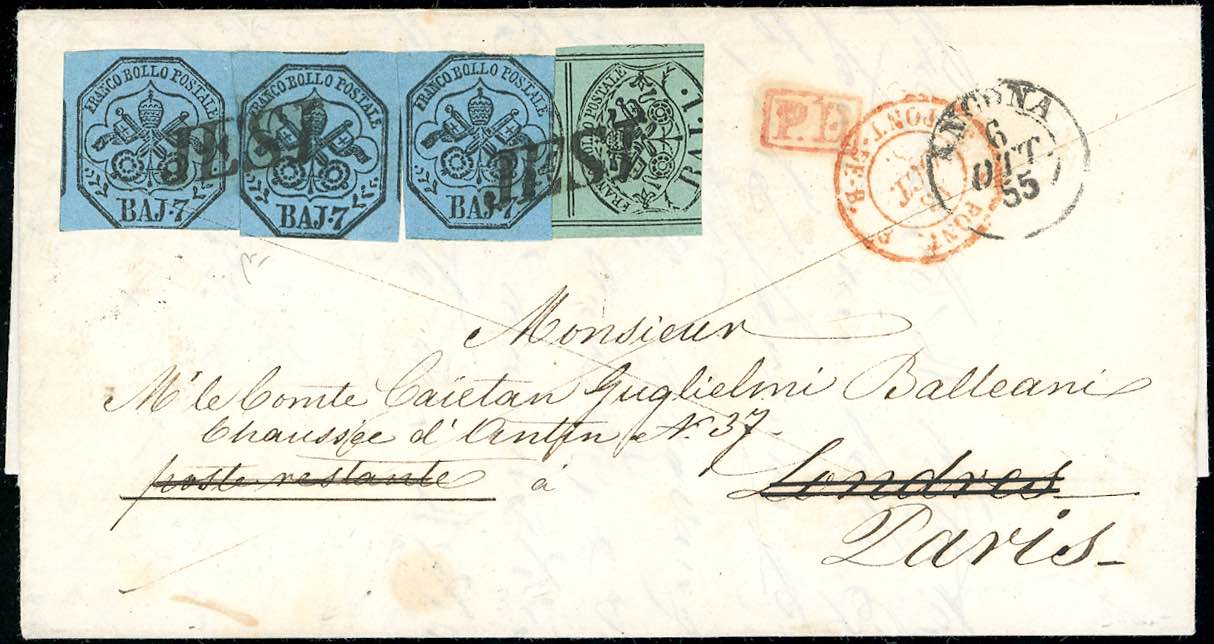 FRANCO BOLLO POSTALE
BAJ·7
FRANCO BOLLO POSTALE
BAJ·7
FRANCO BOLLO POSTALE
BAJ·7
BAJ. 1.
JESI
JESI
P.D.
ANCONA
6
OTT
55
Monsieur
Mr le Comte Caïetan Guglielmi Balleani
Chaussée d'Antin No. 37
poste restante à Londres
Paris